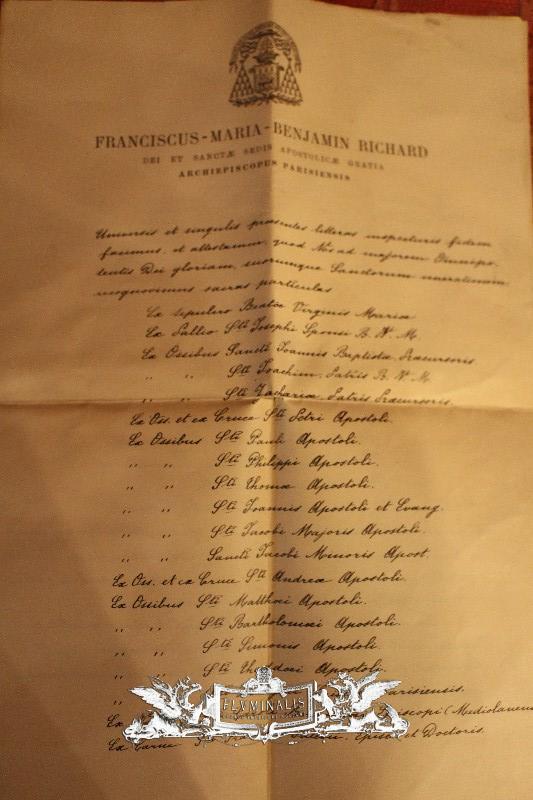 FRANCISCUS-MARIA-BENJAMIN RICHARD
DEI ET SANCTÆ SEDIS APOSTOLICÆ GRATIA
ARCHIEPISCOPUS PARISIENSIS
Universis et singulis præsentes litteras inspecturis fidem
facimus, et attestamur, quod Nos ad majorem Omnipo-
tentis Dei gloriam, suorumque Sanctorum venerationem
recognovimus sacras particulas
Ex sepulcro Beatæ Virginis Mariæ
Ex Pallio Sti Josephi Sponsi B. V. M.
Ex Ossibus Sancti Joannis Baptistæ, Præcursoris
" " Sti Joachim, Patris B. V. M.
" " Sti Zachariæ, Patris Præcursoris.
Ex Oss. et ex Cruce Sti Petri Apostoli.
Ex Ossibus Sti Pauli Apostoli.
" " Sti Philippi Apostoli.
" " Sti Thomæ Apostoli.
" " Sti Joannis Apostoli et Evang.
" " Sti Jacobi Majoris Apostoli.
" " Sancti Jacobi Minoris Apost.
Ex Oss. et ex Cruce Sti Andreæ Apostoli.
Ex Ossibus Sti Matthæi Apostoli.
" " Sti Bartholomæi Apostoli.
" " Sti Simonis Apostoli.
" " Sti Thaddæi Apostoli.
" Parisiensis.
Ex Episcopi (Mediolanens
Ex Carne Episc. et Doctoris.
FLAMINALIS